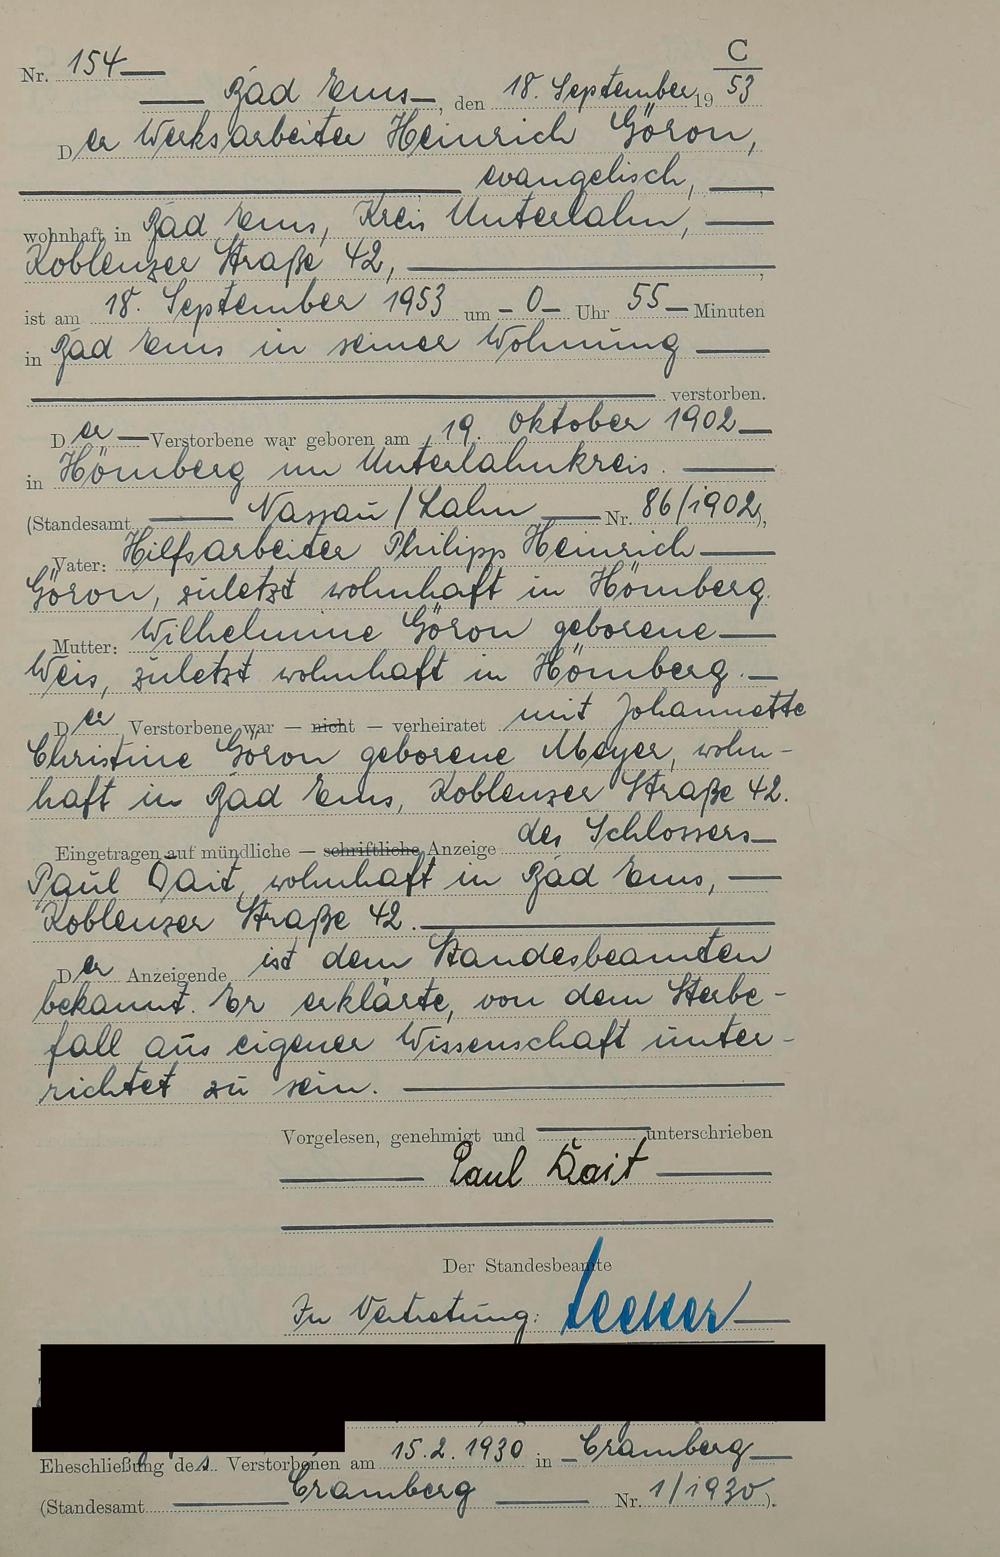 C
Nr. 154
Bad Ems, den 18. September 1953
Der Werksarbeiter Heinrich Göron,
evangelisch,
wohnhaft in Bad Ems, Kreis Unterlahn,
Koblenzer Straße 42,
ist am 18. September 1953 um 0 Uhr 55 Minuten
in Bad Ems in seiner Wohnung
verstorben.
Der Verstorbene war geboren am 19. Oktober 1902
in Hömberg im Unterlahnkreis.
(Standesamt Nassau/Lahn Nr. 86/1902),
Vater: Hilfsarbeiter Philipp Heinrich
Göron, zuletzt wohnhaft in Hömberg.
Mutter: Wilhelmine Göron geborene
Weis, zuletzt wohnhaft in Hömberg.
Der Verstorbene war — nicht — verheiratet mit Johannette
Christine Göron geborene Meyer, wohn-
haft in Bad Ems, Koblenzer Straße 42.
Eingetragen auf mündliche — schriftliche Anzeige des Schlossers
Paul, wohnhaft in Bad Ems,
Koblenzer Straße 42.
Der Anzeigende ist dem Standesbeamten
bekannt. Er erklärte, von dem Sterbe-
fall aus eigener Wissenschaft unter-
richtet zu sein.
Vorgelesen, genehmigt und unterschrieben
Paul
Der Standesbeamte
In Vertretung:
Eheschließung des Verstorbenen am 15.2.1930 in Cramberg
(Standesamt Cramberg Nr. 1/1930).